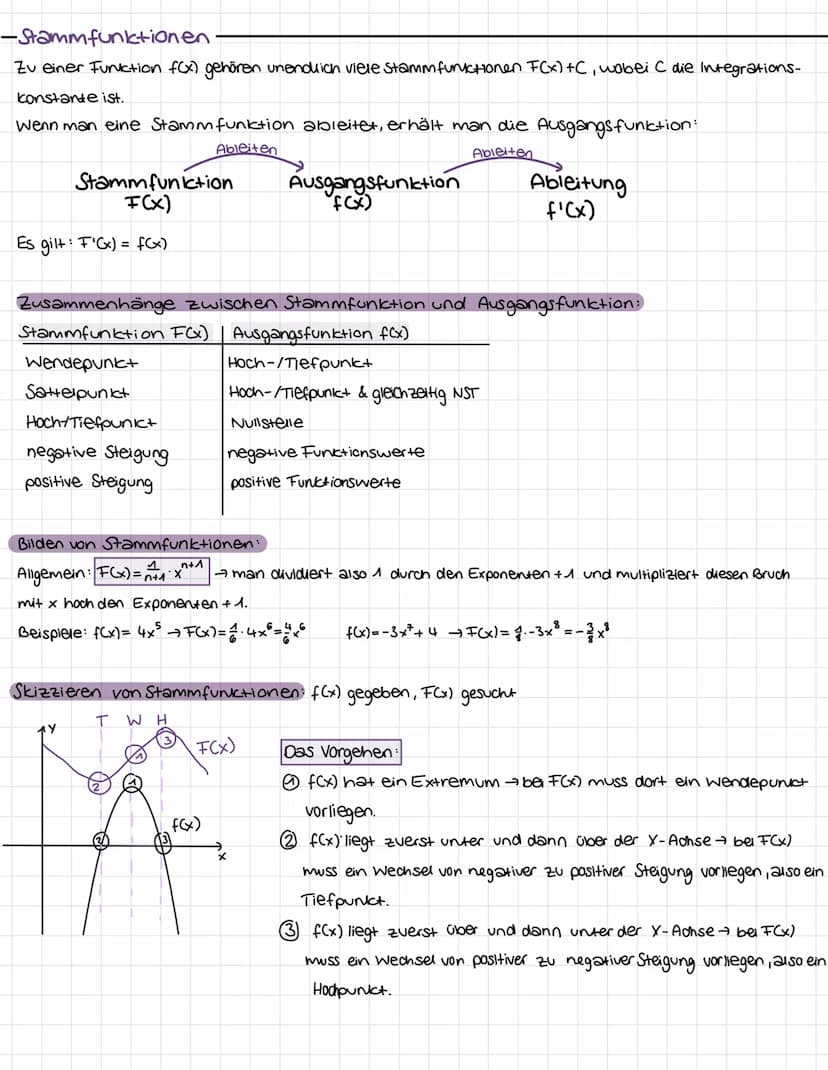 Stammfunktionen
Zu einer Funktion f(x) gehören unendlich viele Stammfunktionen F(x)+C, wobei C die Integrations-
konstante ist.
Wenn man eine Stammfunktion ableitet, erhält man die Ausgangsfunktion:
Ableiten Ableiten
Stammfunktion Ausgangsfunktion Ableitung
F(x) f(x) f'(x)
Es gilt: F'(x) = f(x)
Zusammenhänge zwischen Stammfunktion und Ausgangsfunktion:
Stammfunktion F(x) Ausgangsfunktion f(x)
Wendepunkt Hoch-/Tiefpunkt
Sattelpunkt Hoch-/Tiefpunkt & gleichzeitig NST
Hoch/Tiefpunkt Nullstelle
negative Steigung negative Funktionswerte
positive Steigung positive Funktionswerte
Bilden von Stammfunktionen:
Allgemein: F(x)= 1/n+1 · x^n+1 → man dividiert also 1 durch den Exponenten +1 und multipliziert diesen Bruch
mit x hoch den Exponenten +1.
Beispiele: f(x)= 4x⁵ → F(x)= 1/6 · 4x⁶ = 4/6 x⁶ f(x)=-3x⁷+4 → F(x)= 1/8 · -3x⁸ = -3/8 x⁸
Skizzieren von Stammfunktionen: f(x) gegeben, F(x) gesucht
T W H
y
F(x)
3
1
2
1
f(x)
2
3
x
Das Vorgehen:
① f(x) hat ein Extremum → bei F(x) muss dort ein Wendepunkt
vorliegen.
② f(x) liegt zuerst unter und dann über der X-Achse → bei F(x)
muss ein Wechsel von negativer zu positiver Steigung vorliegen, also ein
Tiefpunkt.
③ f(x) liegt zuerst über und dann unter der X-Achse → bei F(x)
muss ein Wechsel von positiver zu negativer Steigung vorliegen, also ein
Hochpunkt.